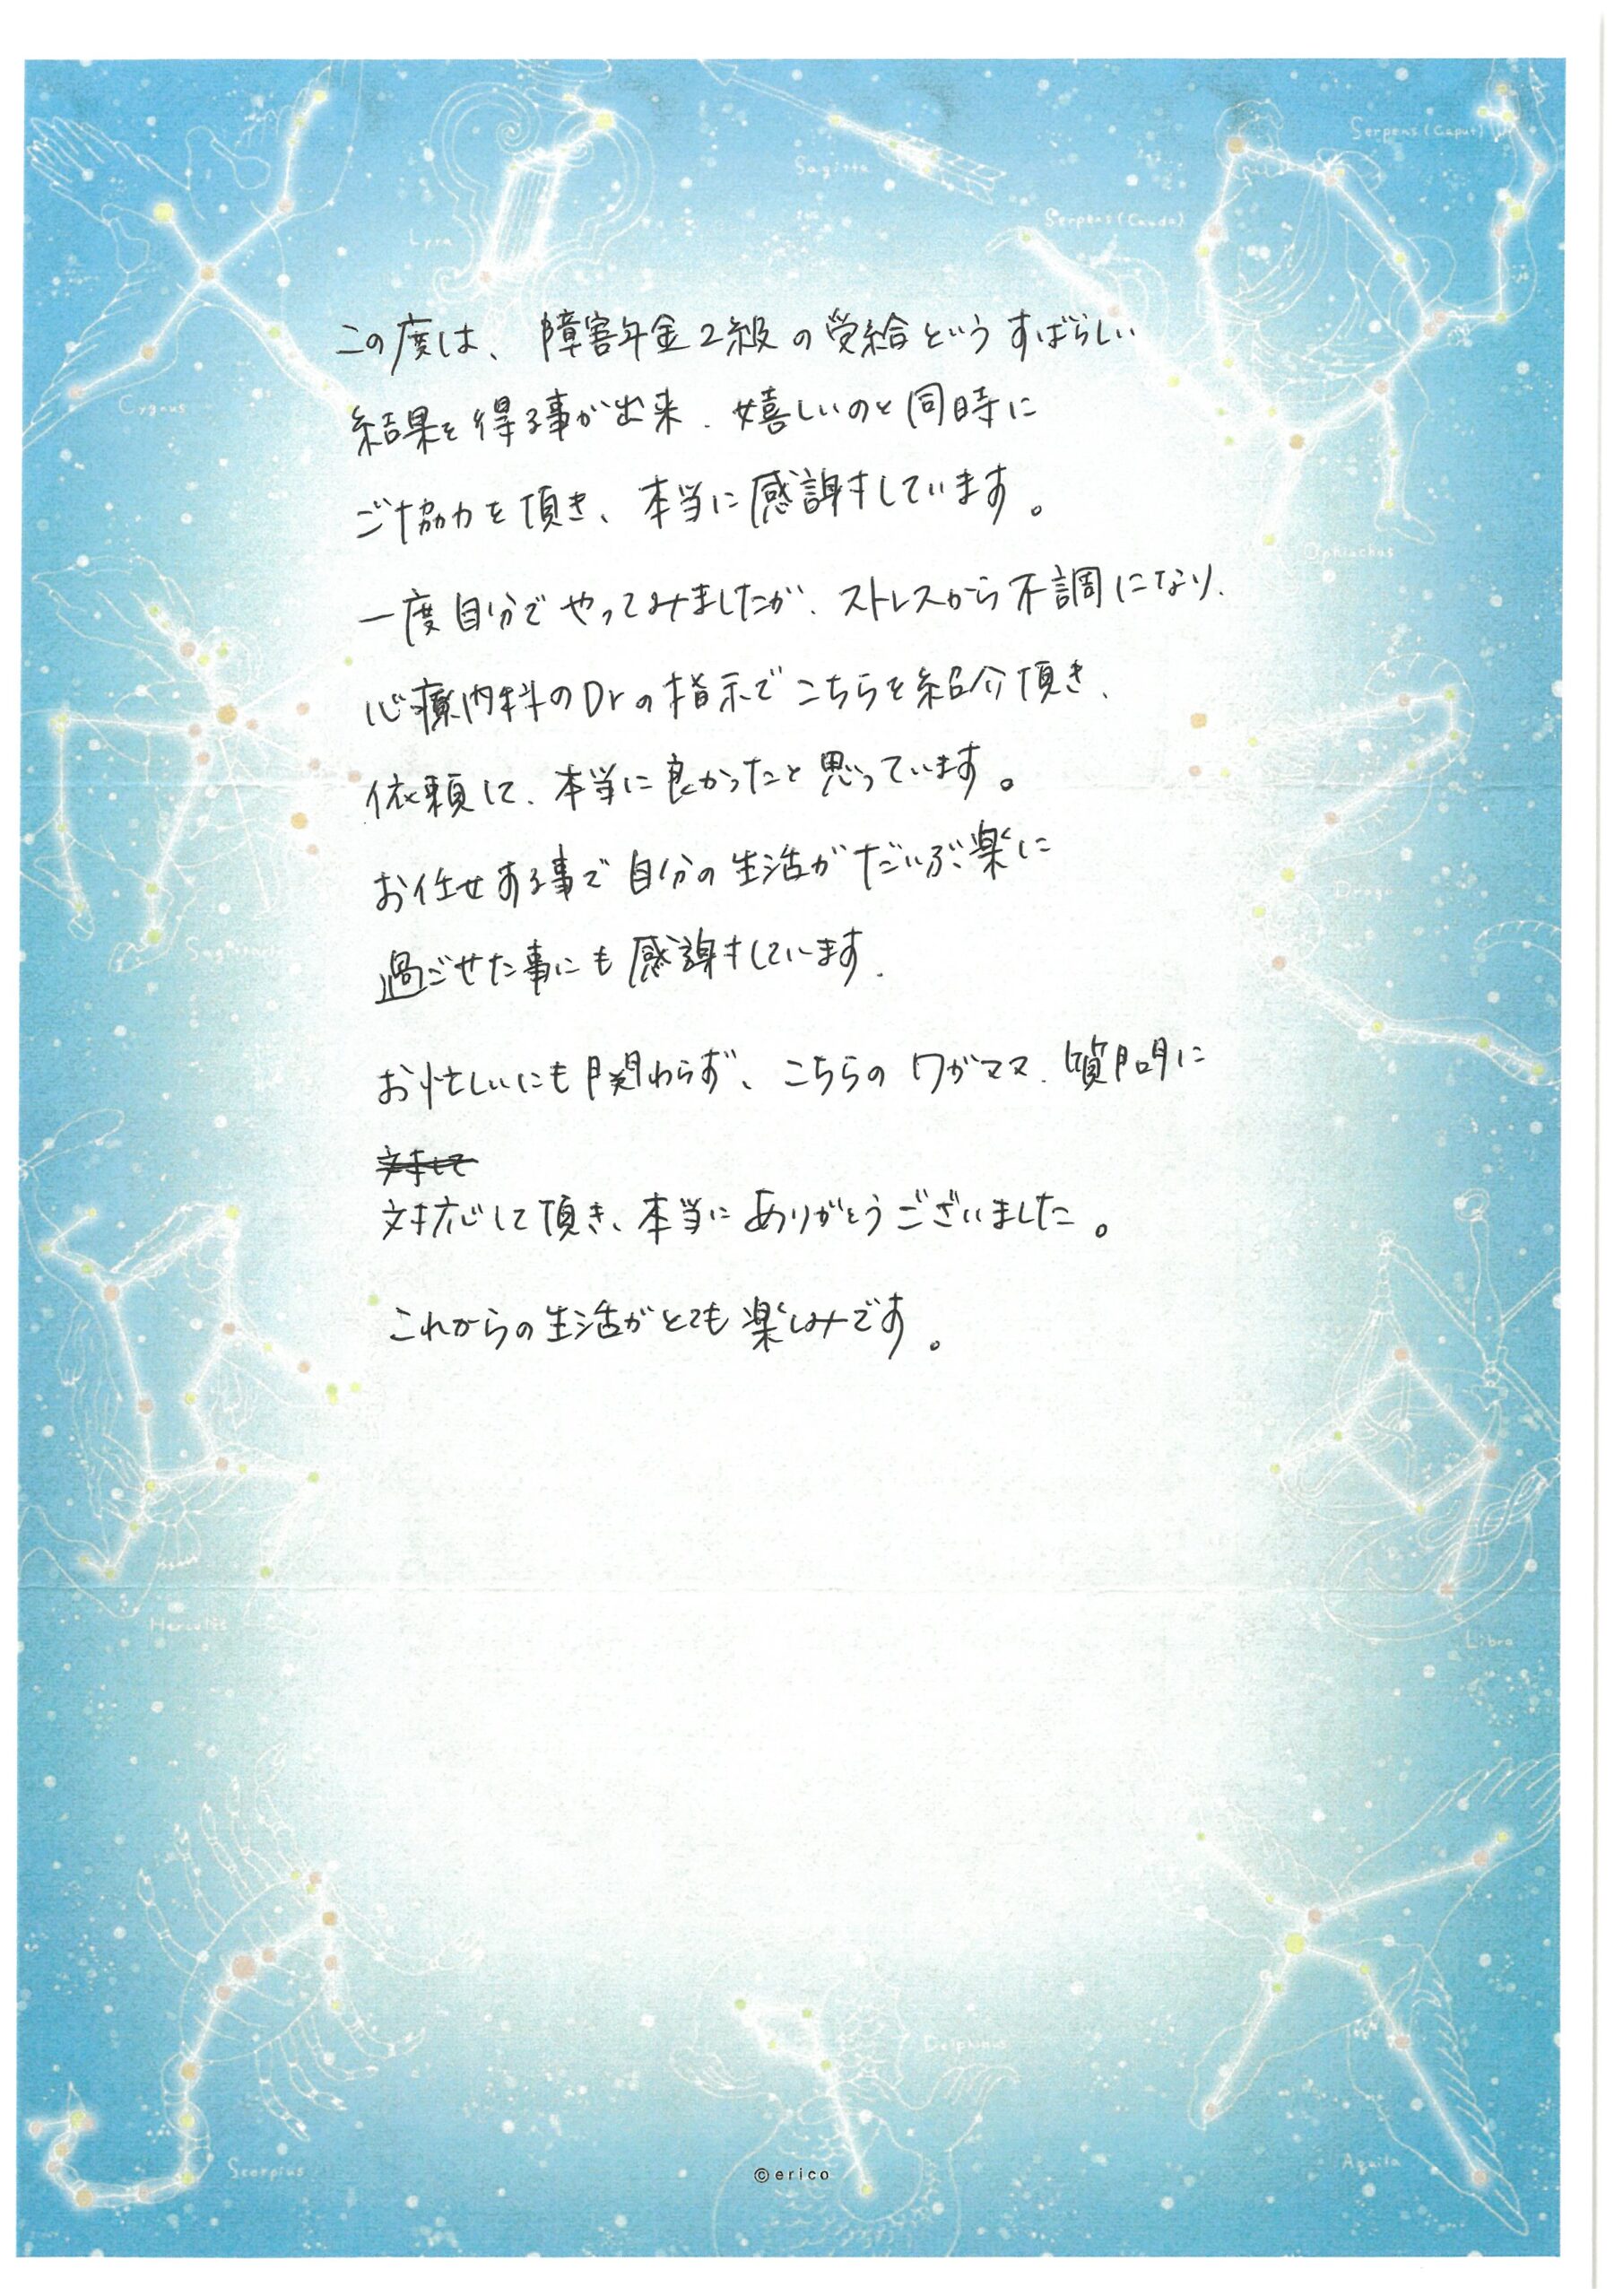 Serpens (Caput)
Sagitta
Serpens (Cauda)
Lyra
この度は、障害年金2級の受給というすばらしい
Cygnus
結果を得る事が出来、嬉しいのと同時に
ご協力を頂き、本当に感謝しています。
Ophiuchus
一度自分でやってみましたが、ストレスから不調になり、
心療内科のDrの指示でこちらを紹介頂き、
依頼して、本当に良かったと思っています。
お任せする事で自分の生活がだいぶ楽に
Draco
過ごせた事にも感謝しています。
お忙しいにも関わらず、こちらのワガママ、質問に
対して
対応して頂き、本当にありがとうございました。
これからの生活がとても楽しみです。
Hercules
Libra
Delphinus
Aquila
Scorpius
©erico